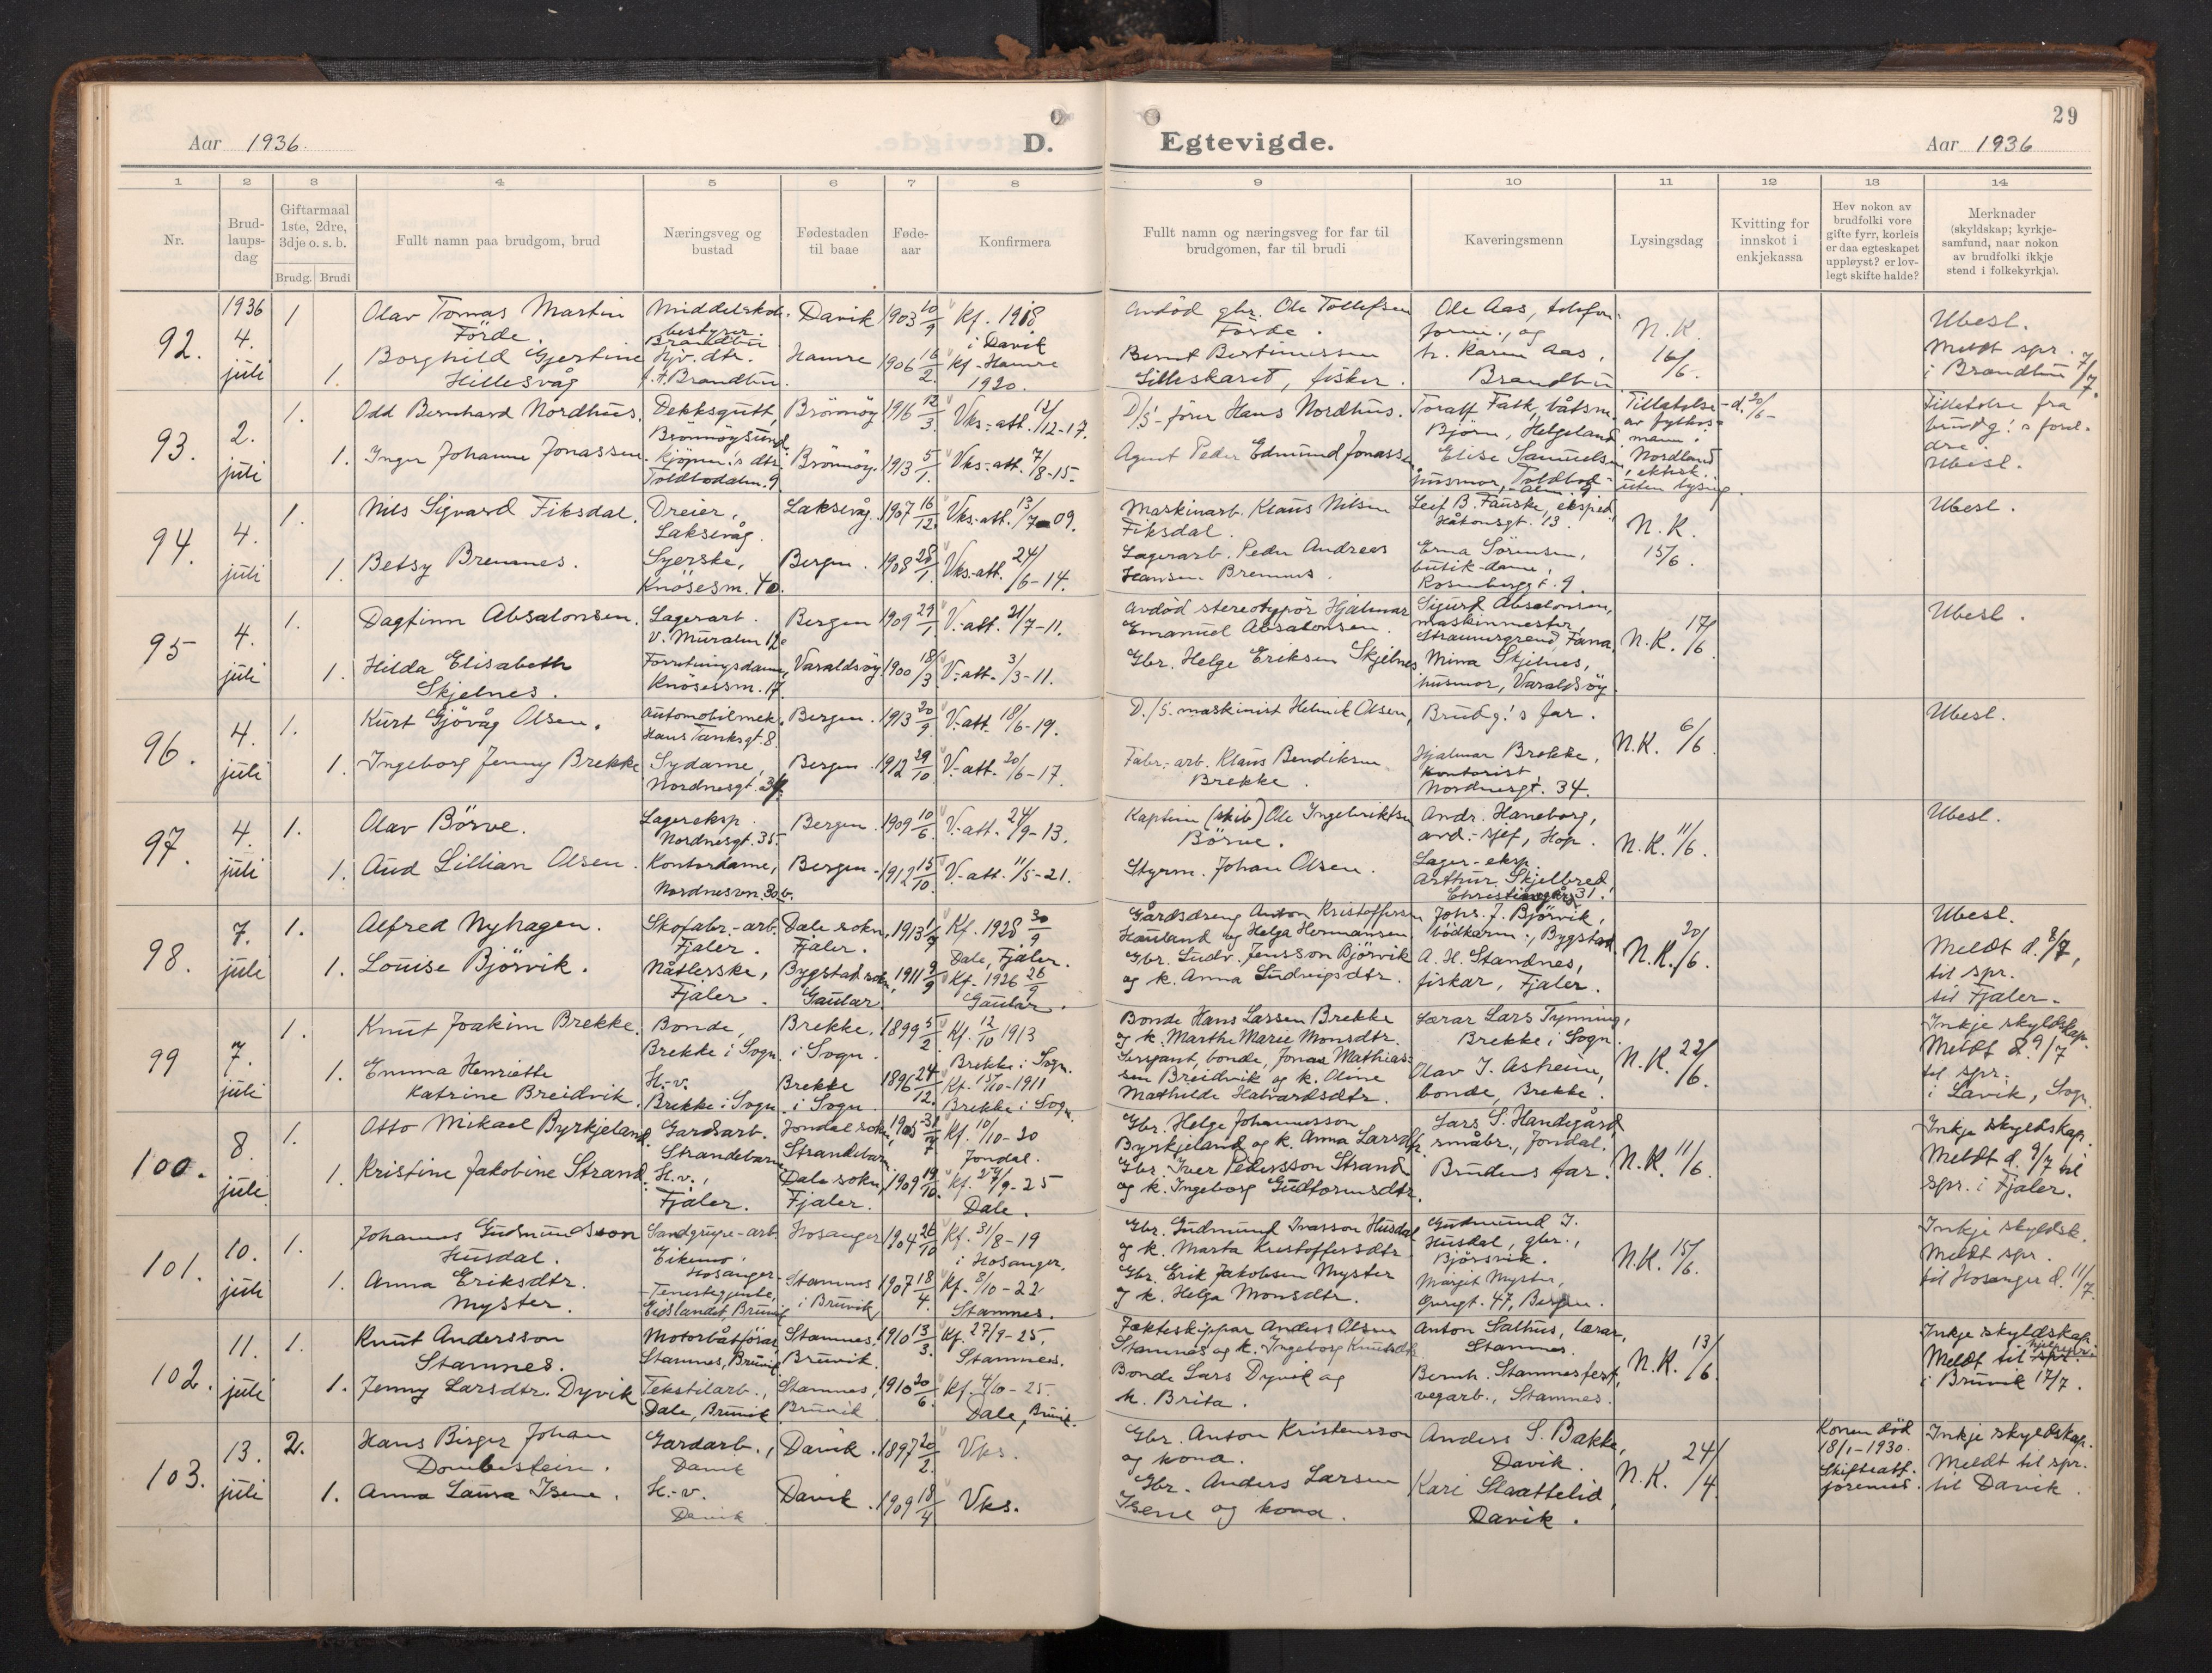 Aar 1936. D.
Egtevigde. 29
Aar 1936
1 2 3 4 5 6 7 8
9 10 11 12 13 14
Nr.
Brud-
laups-
dag
Giftarmaal
1ste, 2dre,
3dje o. s. b.
Brudg. Brudi
Fullt namn paa brudgom, brud
Næringsveg og
bustad
Fødestaden
til baae
Føde-
aar
Konfirmera
Fullt namn og næringsveg for far til
brudgomen, far til brudi
Kaveringsmenn
Lysingsdag
Kvitting for
innskot i
enkjekassa
Hev nokon av
brudfolki vore
gifte fyrr, korleis
er daa egteskapet
uppløyst? er lov-
legt skifte halde?
Merknader
(skyldskap; kyrkje-
samfund, naar nokon
av brudfolki ikkje
stend i folkekyrkja).
92. 1936 4. juli
1 Olav Tomas Martin
Förde.
Middelskole-
bestyrer.
Brandbu
Davik 1903 10/9 Kf. 1918
i Davik
Avdöd gbr. Ole Tollefsen
Förde.
Ole Aas, telefon-
form., og
N.K.
16/6.
Ubesl.
Meldt spr.
i Brandbu 7/7.
1. Borghild Gjertine
Hillesvåg
Hjv. dtr.
f. t. Brandbu.
Hamre 1906 16/2. Kf. Hamre
1920.
Bernt Bertinussen
Lilleskaret, fisker.
fr. Karen Aas,
Brandbu
93. 2. juli
1. Odd Bernhard Nordhus.
Dekksgutt,
Brönnöysund.
Brönnöy 1916 12/3. Vks.-att. 12/12-17.
D/S-förer Hans Nordhus.
Toralf Falk, båtsm.
Björn, Helgeland
Tillatelse
av fylkes-
mann i
Nordland
uten lysing.
d. 20/6-
Tillatelse fra
brudg.'s forel-
dre.
Ubesl.
1. Inger Johanne Jonassen
Kjöpm.'s dtr.
Toldbodalm. 9
Brönnöy. 1913 5/1. Vks.-att. 7/8-15.
Agent Peder Edmund Jonassen
Elise Samuelsen
husmor, Toldbod-
alm. 9
94. 4. juli
1. Nils Sigvard Fiksdal.
Dreier,
Laksevåg.
Laksevåg. 1907 16/12. Vks.-att. 13/7-09.
Maskinarb. Klaus Nilsen
Fiksdal.
Leif B. Fauske, eksped.
Håkonsgt. 13.
N.K.
15/6.
Ubesl.
1. Betsy Bremnes.
Syerske,
Knösesm. 40.
Bergen. 1908 28/1. Vks.-att. 24/6-14.
Lagerarb. Peder Andreas
Hansen Bremnes.
Erna Sörensen,
butik-dame,
Rosenbergsgt. 9.
95 4. juli
1. Dagfinn Absalonsen.
Lagerarb.
v. Muralm 12c
Bergen 1909 29/1. V.-att. 21/7-11.
Avdöd stereotypör Hjalmar
Emanuel Absalonsen.
Sigurd Absalonsen,
maskinmester,
Straumsgrend, Fana.
N.K. 17/6.
Ubesl.
1. Hilda Elisabeth
Skjelnes.
Forretningsdame,
Knösessm. 17
Varaldsöy 1900 18/3 V.-att. 3/3-11.
Gbr. Helge Eriksen Skjelnes
Mina Skjelnes,
husmor, Varaldsöy
96. 4. juli
1. Kurt Gjövåg Olsen.
Automobilmek.
Hans Tanksgt. 8.
Bergen. 1913 20/9 V.-att. 18/6-19.
D./S. maskinist Helmik Olsen,
Brudg.'s far.
N.K. 6/6.
Ubesl.
1. Ingeborg Jenny Brekke
Sydame,
Nordnesgt. 34.
Bergen 1912 29/10. V.-att. 20/6-17.
Fabr.-arb. Klaus Bendiksen
Brekke.
Hjalmar Brekke,
kontorist,
Nordnesgt. 34.
97. 4. juli
1. Olav Börve.
Lagereksp.
Nordnesgt. 35.
Bergen. 1909 10/6. V.-att. 24/9-13.
Kaptein (skib) Ole Ingebriktsen
Börve.
Andr. Haneborg,
avd.-sjef, Hop.
N.K. 11/6.
Ubesl.
1. Aud Lillian Olsen.
Kontordame,
Nordnesvn. 30 b.
Bergen. 1912 15/10. V.-att. 11/5-21.
Styrm. Johan Olsen.
Lager-eksp.
Arthur Skjelbred,
31.
98. 7. juli
1. Alfred Nyhagen.
Skofabr.-arb.
Fjaler.
Dale sokn,
Fjaler.
1913 1/9 Kf. 1928 30/9
Dale, Fjaler.
Gårdsdreng Anton Kristoffersen
Hauland og Helga Hermansen
Johs. J. Björvik,
bödkarm., Bygstad
N.K. 20/6.
Ubesl.
Meldt d. 8/7,
til spr.
til Fjaler.
1. Louise Björvik.
Nåtlerske,
Fjaler.
Bygstad sokn,
Gaular
1911 9/9 Kf. 1926 26/9
Gaular.
Gbr. Ludv. Jensson Björvik
og k. Anna Ludvigsdtr.
A. H. Standnes,
fiskar, Fjaler.
99 7. juli
1. Knut Joakim Brekke.
Bonde,
Brekke i Sogn.
Brekke.
i Sogn.
1899 5/2. Kf. 12/10 1913
Brekke i Sogn.
Bonde Hans Lassen Brekke
og k. Marthe Marie Monsdtr.
Lærar Lars Tynning,
Brekke i Sogn
N.K. 22/6.
Inkje skyldskap.
Meldt d. 9/7
til spr.
i Lavik, Sogn.
1. Emma Henriette
Katrine Breidvik.
H.-v.
Brekke i Sogn
Brekke
i Sogn.
1896 24/12. Kf. 15/10-1911
Brekke i Sogn.
Sersjant, bonde, Jonas Mathias-
sen Breidvik og k. Oline
Mathilde Halvardsdtr.
Olav J. Asheim,
bonde, Brekke.
100. 8. juli
1. Otto Mikael Byrkjeland.
Gardsarb.
Strandebarm
Jondal sokn,
Strandebarm.
1905 31/7 Kf. 10/10-20
Jondal.
Gbr. Helge Johannesson
Byrkjeland og k. Anna Larsdtr.
Lars S. Handegård,
småbr., Jondal.
N.K. 11/6.
Inkje skyldskap.
Meldt d. 9/7 til
spr. i Fjaler.
1. Kristine Jakobine Strand.
H.v.,
Fjaler.
Dale sokn,
Fjaler.
1909 19/10. Kf. 27/9-25
Dale.
Gbr. Iver Pedersson Strand
og k. Ingeborg Gudtormsdtr.
Brudens far.
101. 10. juli
1. Johannes Gudmundsson
Husdal.
Sandgrype-arb.
Eikemo,
Hosanger.
Hosanger 1904 26/10 Kf. 31/8-19
i Hosanger.
Gbr. Gudmund Ivarsson Husdal
og k. Marta Kristoffersdtr.
Gudmund J.
Husdal, gbr.,
Björsvik.
N.K. 15/6.
Inkje skyldsk.
Meldt spr.
til Hosanger d. 11/7.
1. Anna Eriksdtr.
Myster.
Tenestegjente,
Eidslandet, Bruvik
Stamnes
i Bruvik
1907 18/4. Kf. 8/10-22
Stamnes.
Gbr. Erik Jakobsen Myster
og k. Helga Monsdtr.
Margit Myster,
47, Bergen.
102. 11. juli
1. Knut Andersson
Stamnes.
Motorbåtförar,
Stamnes, Bruvik
Stamnes.
Bruvik.
1910 13/3. Kf. 27/9-25.
Stamnes.
Jekteskippar Anders Olsen
Stamnes og k. Ingeborg Knutsdtr.
Anton Salhus, lærar,
Stamnes.
N.K. 13/6.
Inkje skyldskap.
Meldt til spr.
i Bruvik 17/7.
1. Jenny Larsdtr. Dyvik
Tekstilarb.,
Dale, Bruvik
Stamnes,
Bruvik
1910 20/6. Kf. 4/10-25.
Dale, Bruvik.
Bonde Lars Dyvik og
k. Brita.
Bernh. Stamnestert,
vegarb., Stamnes.
103. 13. juli
2. Hans Birger Johan
Dombestein.
Gardarb.,
Davik
Davik. 1897 20/2. Vks.
Gbr. Anton Kristensson
og kona.
Anders S. Bakke,
Davik.
N.K. 24/4.
Konen död
18/1-1930.
Skifteatt.
Inkje skyldskap.
Meldt til spr.
til Davik.
1. Anna Laura Isene.
H.-v.
Davik
Davik. 1909 18/4 Vks.
Gbr. Anders Larsen
Isene og kona.
Kari Skattelid,
Davik.